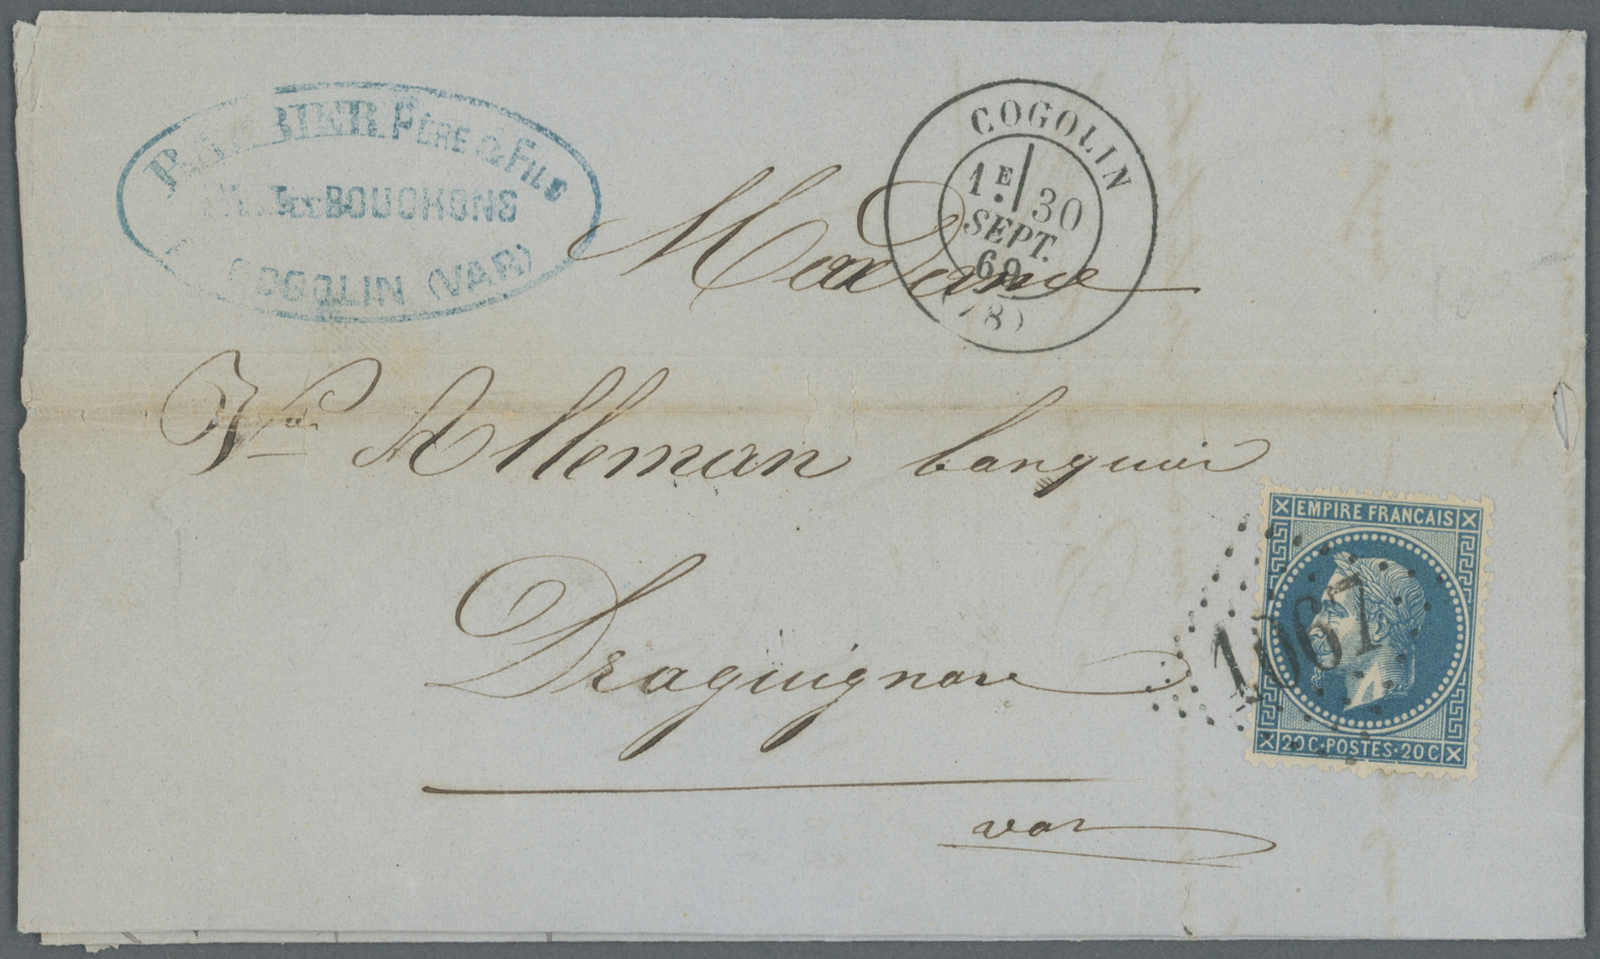 PÈRE & FILS
BOUCHONS
COGOLIN (VAR)
COGOLIN
1E 30
SEPT.
69
Madame
Vve Alleman banquier
Draguignan
var
EMPIRE FRANCAIS
1067
20C·POSTES·20C